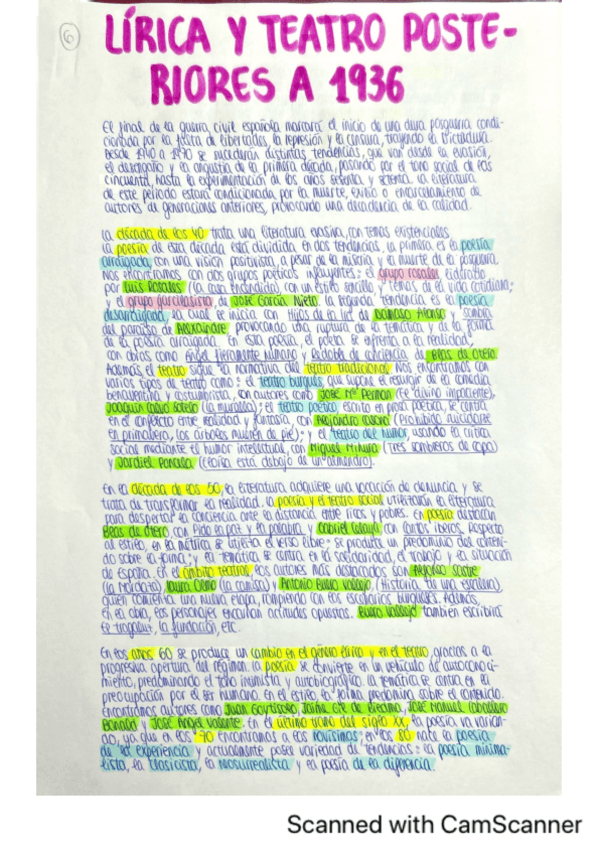 6
LÍRICA Y TEATRO POSTE-
RIORES A 1936
El final de la guerra civil española marcará el inicio de una dura posguerra condi-
cionada por la falta de libertades, la represión y la censura, trayendo la Dictadura.
Desde 1940 a 1970 se sucederán distintas tendencias, que van desde la evasión,
el desarraigo y la angustia de la primera década, pasando por el tono social de los
cincuenta, hasta la experimentación de los años sesenta y setenta. La literatura
de este período estará condicionada por la muerte, exilio o encarcelamiento de
autores de generaciones anteriores, provocando una decadencia de la calidad.
La década de los 40 trata una literatura evasiva, con temas existenciales
La poesía de esta década está dividida en dos tendencias, la primera es la poesía
arraigada, con una visión positivista, a pesar de la miseria y la muerte de la posguerra.
Nos encontramos con dos grupos poéticos influyentes: el grupo rosales, liderado
por Luis Rosales (La casa encendida) con un estilo sencillo y temas de la vida cotidiana;
y el grupo garcilasista, de José García Nieto. La segunda tendencia es la poesía
desarraigada, la cual se inicia con Hijos de la ira de Dámaso Alonso y sombra
del paraíso de Aleixandre, provocando una ruptura de la temática y de la forma
de la poesía arraigada. En esta poesía, el poeta se enfrenta a la realidad,
con obras como Ángel fieramente humano y Redoble de conciencia, de Blas de Otero.
Además, el teatro sigue la normativa del teatro tradicional. Nos encontramos con
varios tipos de teatro como: el teatro burgués, que supone el resurgir de la comedia
benaventina y costumbrista, con autores como José Mª Pemán (El divino impaciente),
Joaquín Calvo Sotelo (La muralla); el teatro poético escrito en prosa poética, se centra
en el conflicto entre realidad y fantasía, con Alejandro Casona (Prohibido suicidarse
en primavera, Los árboles mueren de pie); y el teatro del humor, usando la crítica
social mediante el humor intelectual, con Miguel Mihura (Tres sombreros de copa)
y Jardiel Poncela (Eloísa está debajo de un almendro).
En la década de los 50, la literatura adquiere una vocación de denuncia y se
trata de transformar la realidad. La poesía y el teatro social utilizarán la literatura
para despertar la conciencia ante la distancia entre ricos y pobres. En poesía destacan
Blas de Otero con Pido la paz y la palabra y Gabriel Celaya con Cantos íberos. Respecto
al estilo, en la métrica se utiliza el verso libre; se produce un predominio del conteni-
do sobre la forma; y la temática se centra en la solidaridad, el trabajo y la situación
de España. En el ámbito teatral, los autores más destacados son Alfonso Sastre
(La mordaza), Lauro Olmo (La camisa) y Antonio Buero Vallejo (Historia de una escalera)
quien comienza una nueva etapa, rompiendo con los escenarios burgueses. Además,
en su obra, los personajes encarnan actitudes opuestas. Buero Vallejo también escribirá
El tragaluz, La fundación, etc.
En los años 60 se produce un cambio en el género lírico y en el teatro, gracias a la
progresiva apertura del régimen. La poesía se convierte en un vehículo de autoconoci-
miento, predominando el tono intimista y autobiográfico. La temática se centra en la
preocupación por el ser humano. En el estilo la forma predomina sobre el contenido.
Encontramos autores como Juan Goytisolo, Jaime Gil de Biedma, José Manuel Caballero
Bonald y José Ángel Valente. En el último tramo del siglo XX, la poesía va varian-
do, ya que en los 70 encontramos a los novísimos; en los 80 nace la poesía
de la experiencia y actualmente posee variedad de tendencias: la poesía minima-
lista, la clasicista, la neosurrealista y la poesía de la diferencia.
Scanned with CamScanner